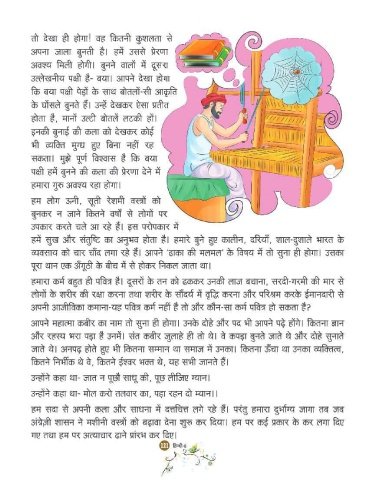 तो देखा ही होगा! वह कितनी कुशलता से
अपना जाला बुनती है। हमें उससे प्रेरणा
अवश्य मिली होगी। बुनने वालों में दूसरा
उल्लेखनीय पक्षी है- बया। आपने देखा होगा
कि बया पक्षी पेड़ों के साथ बोतलों-सी आकृति
के घोंसले बुनते हैं। उन्हें देखकर ऐसा प्रतीत
होता है, मानों उल्टी बोतलें लटकी हों।
इनकी बुनाई की कला को देखकर कोई
भी व्यक्ति मुग्ध हुए बिना नहीं रह
सकता। मुझे पूर्ण विश्वास है कि बया
पक्षी हमें बुनने की कला की प्रेरणा देने में
हमारा गुरू अवश्य रहा होगा।
हम लोग ऊनी, सूती रेशमी वस्त्रों को
बुनकर न जाने कितने वर्षों से लोगों पर
उपकार करते चले आ रहे हैं। इस परोपकार में
हमें सुख और संतुष्टि का अनुभव होता है। हमारे बुने हुए कालीन, दरियाँ, शाल-दुशाले भारत के
व्यवसाय को चार चाँद लगा रहे हैं। आपने 'ढाका की मलमल' के विषय में तो सुना ही होगा। उसका
पूरा थान एक अँगूठी के बीच में से होकर निकल जाता था।
हमारा कर्म बहुत ही पवित्र है। दूसरों के तन को ढककर उनकी लाज बचाना, सरदी-गरमी की मार से
लोगों के शरीर की रक्षा करना तथा शरीर के सौंदर्य में वृद्धि करना और परिश्रम करके ईमानदारी से
अपनी आजीविका कमाना-यह पवित्र कर्म नहीं है तो और कौन-सा कर्म पवित्र हो सकता है?
आपने महात्मा कबीर का नाम तो सुना ही होगा। उनके दोहे और पद भी आपने पढ़े होंगे। कितना ज्ञान
और रहस्य भरा पड़ा है उनमें। संत कबीर जुलाहे ही तो थे। वे कपड़ा बुनते जाते थे और दोहे सुनाते
जाते थे। अनपढ़ होते हुए भी कितना सम्मान था समाज में उनका। कितना ऊँचा था उनका व्यक्तित्व,
कितने निर्भीक थे वे, कितने ईश्वर भक्त थे, यह सभी जानते हैं।
उन्होंने कहा था- जात न पूछौ साधू की, पूछ लीजिए ग्यान।
उन्होंने कहा था- मोल करो तलवार का, पड़ा रहन दो म्यान।।
हम सदा से अपनी कला और साधना में दत्तचित्त लगे रहे हैं। परंतु हमारा दुर्भाग्य जागा तब जब
अंग्रेज़ी शासन ने मशीनी वस्त्रों को बढ़ावा देना शुरू कर दिया। हम पर कई प्रकार के कर लगा दिए
गए तथा हम पर अत्याचार ढाने प्रारंभ कर दिए।